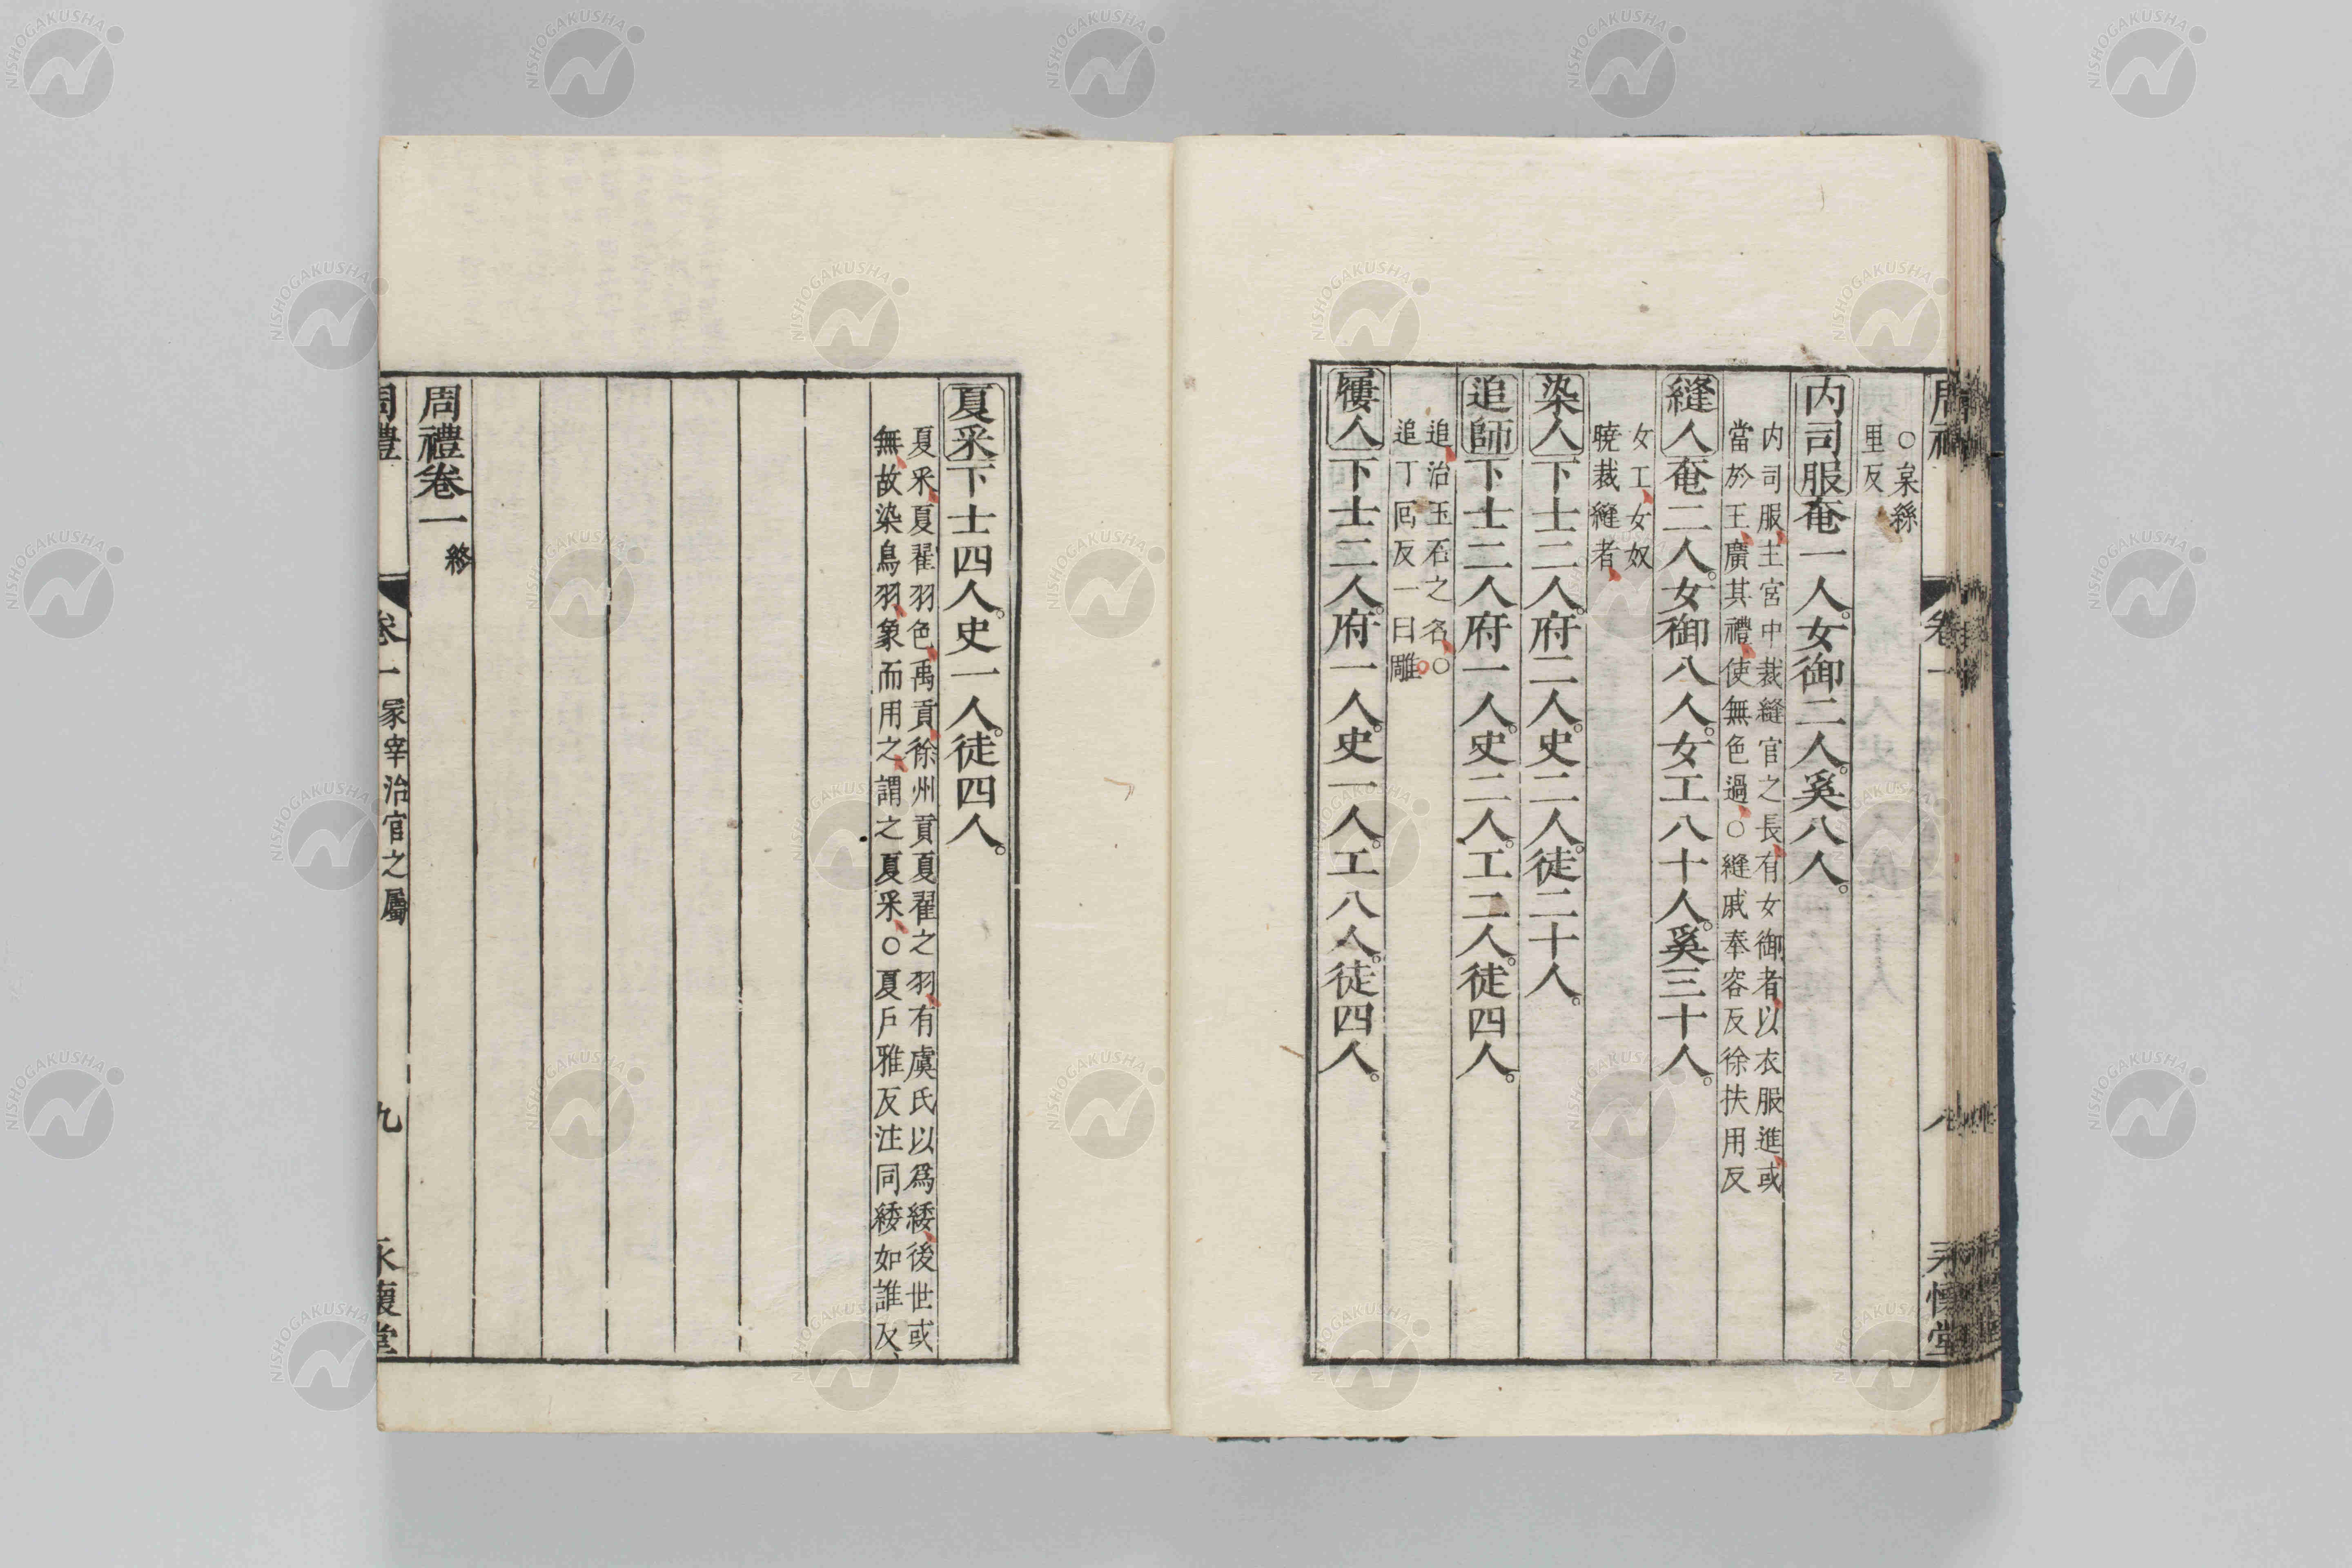 ○枲絲
里反
内司服奄一人。女御二人。奚八人。
内司服、主宮中裁縫官之長、有女御者、以衣服進、或
當於王、廣其禮、使無色過、○縫戚奉容反徐扶用反
縫人奄二人。女御八人。女工八十人。奚三十人。
女工、女奴
曉裁縫者、
染人下士二人。府二人。史二人。徒二十人。
追師下士二人。府一人。史二人。工二人。徒四人。
追、治玉石之名、○
追丁回反一曰雕。
屨人下士二人。府一人。史一人。工八人。徒四人。
夏采下士四人。史一人。徒四人。
夏采、夏翟羽色、禹貢、徐州貢夏翟之羽、有虞氏以爲緌、後世或
無、故染鳥羽、象而用之、謂之夏采、○夏戶雅反注同緌如誰反、
周禮卷一 終
周禮 卷一 冢宰治官之屬 九 永懷堂
卷一 八 永懷堂
NISHOGAKUSHA